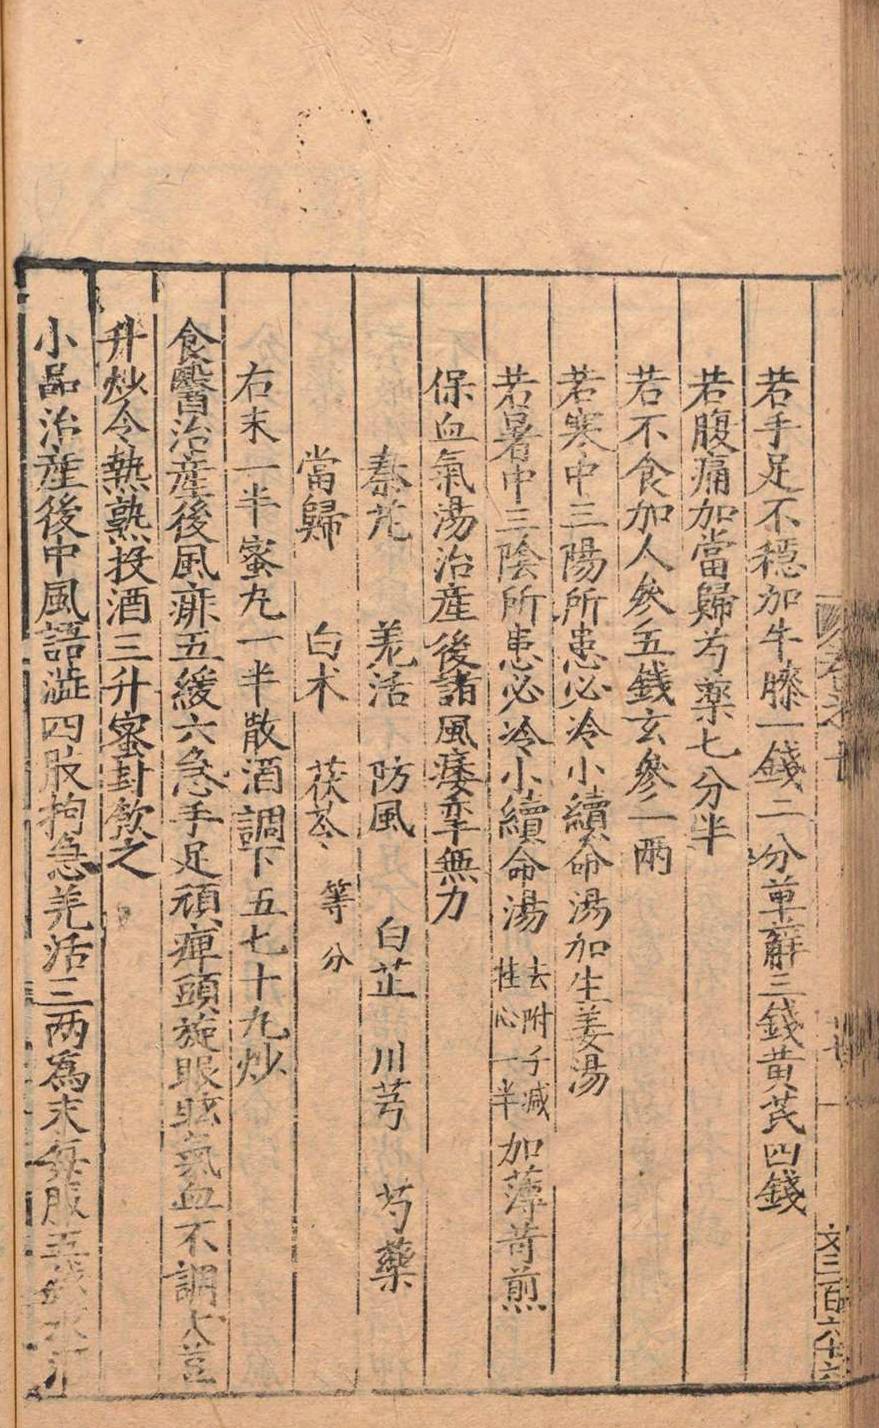 若手足不穩加牛膝一錢二分萆薢三錢黃芪四錢
若腹痛加當歸芍藥七分半
若不食加人參五錢玄參一兩
若寒中三陽所患必冷小續命湯加生姜湯
若暑中三陰所患必冷小續命湯去附子减桂心一半加薄荷煎
保血氣湯治產後諸風痿孿無力
秦艽 羌活 防風 白芷 川芎 芍藥
當歸 白术 茯苓等分
右末一半蜜九一半散酒調下五七十九炒
食醫治產後風痱五緩六急手足頑痺頭旋眼眩氣血不調大荳
升炒令熱熟投酒三升蜜封飲之
小品治產後中風語澁四肢拘急羌活三两為末每服五錢
文三百六十六